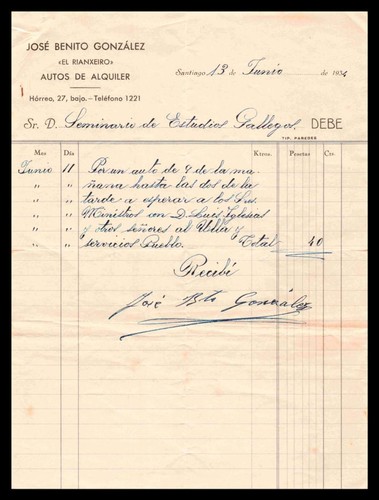 JOSÉ BENITO GONZÁLEZ
«EL RIANXEIRO»
AUTOS DE ALQUILER
Hórreo, 27, bajo.-Teléfono 1221
Santiago, 13 de Junio de 1934
Sr. D. Seminario de Estudios Gallegos. DEBE
TIP. PAREDES
Mes Día Ktros. Pesetas Cts.
Junio 11 Por un auto de 9 de la ma-
" " ñana hasta las dos de la
" " tarde a esperar a los Srs.
" " Ministros con D. Luis Iglesias
" " y otros señores al Ulla y
" " servicios Pueblo. Total 40
Recibí
José Bto González